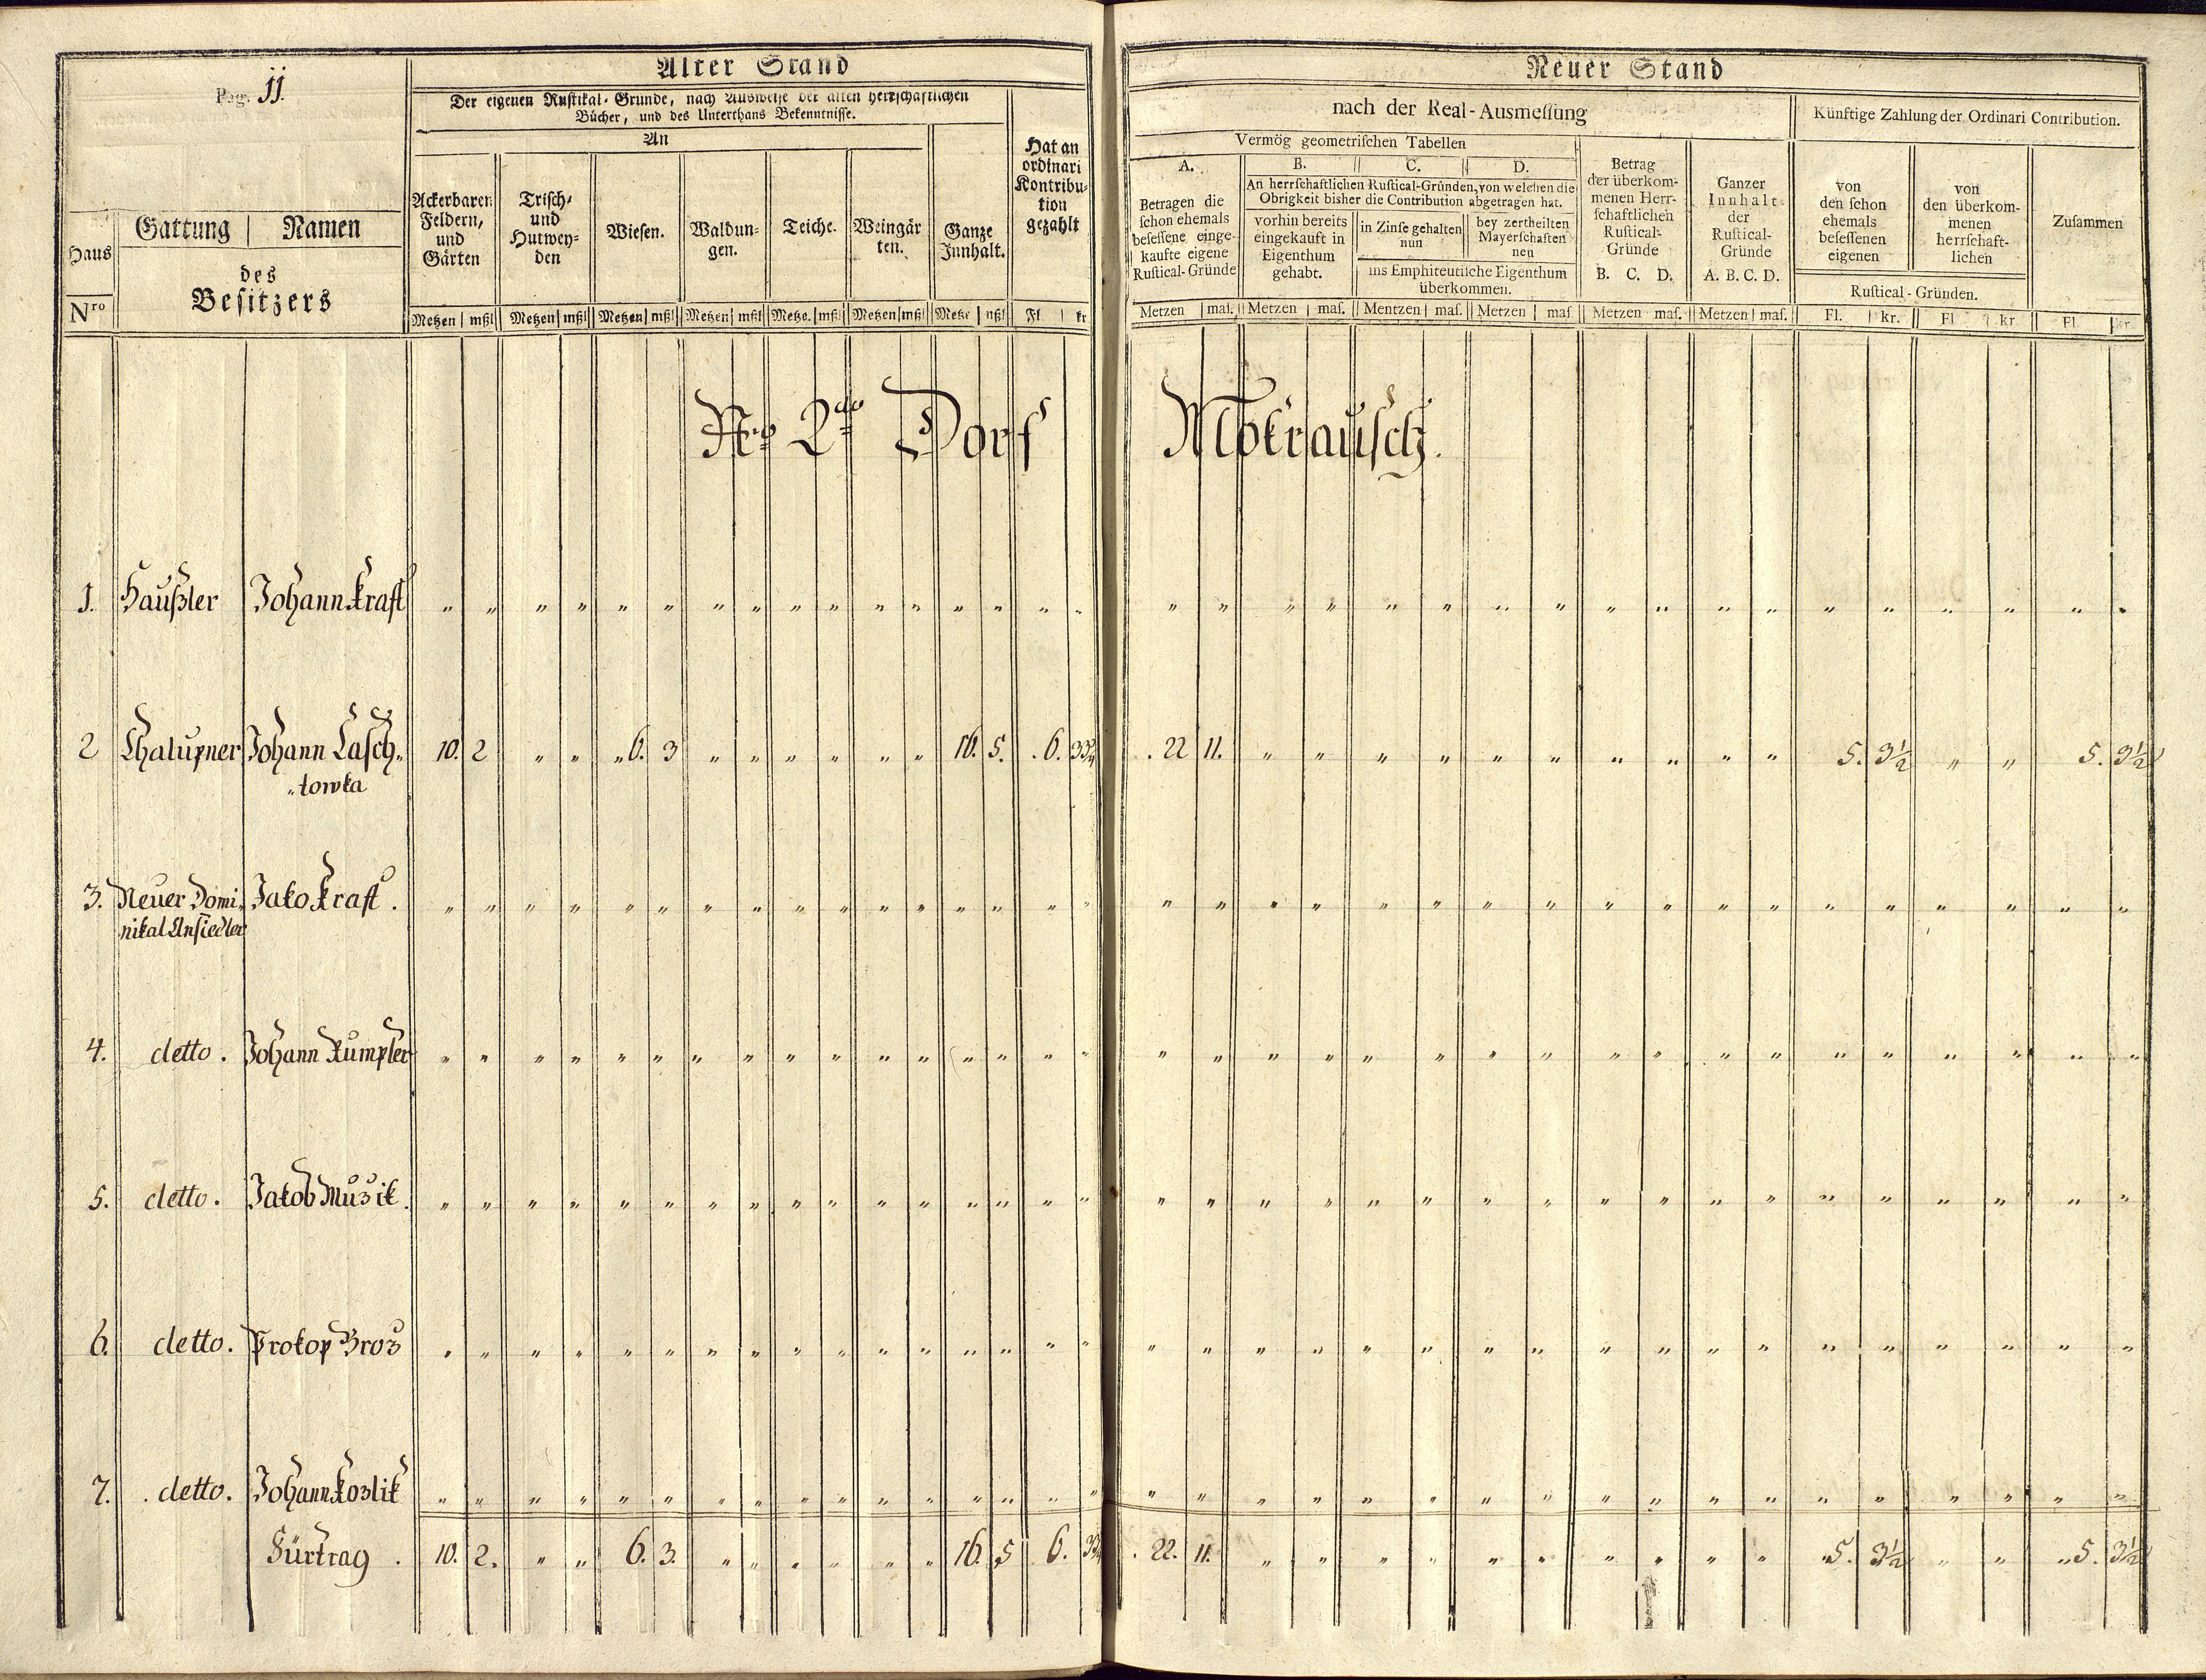 Pag. 11.
Alter Stand
Der eigenen Rustikal-Gründe, nach Ausweise der alten herrschaftlichen
Bücher, und des Unterthans Bekenntnisse.
An
Haus
Nro
Gattung | Namen
des
Besitzers
Ackerbaren
Feldern,
und
Gärten
Trisch-
und
Hutwey-
den
Wiesen.
Waldun-
gen.
Teiche.
Weingär
ten.
Ganze
Innhalt.
Hat an
ordinari
Kontribu-
tion
gezahlt
Metzen | mßl Metzen | mßl Metzen | mßl Metzen | mßl Metze. | mßl Metzen | mßl Metze | mßl Fl. | kr
Nro 2do Dorf
1. Haußler Johann Kraft " " " " " " " " " " " " " " " "
2 Chalupner Johann Lasch- 10. 2 " " " 6. 3 " " " " " " 16. 5. . 6. 33/4
"towka
3. Neuer Domi- Jako Kraft. " " " " " " " " " " " " " " " "
nikal Ansiedler
4. detto. Johann Rumpler " " " " " " " " " " " " " " " "
5. detto. Jakob Musik. " " " " " " " " " " " " " " " "
6. detto. Prokop Broz " " " " " " " " " " " " " " " "
7. . detto. Johann Kozlik " " " " " " " " " " " " " " " "
Fürtrag . 10. 2. " " 6. 3. " " " " " " 16. 5 6. 33/4
Neuer Stand
nach der Real-Ausmessung
Künftige Zahlung der Ordinari Contribution.
Vermög geometrischen Tabellen
A.
Betragen die
schon ehemals
besessene einge-
kaufte eigene
Rustical-Gründe
B. C. D.
An herrschaftlichen Rustical-Gründen, von welchen die
Obrigkeit bisher die Contribution abgetragen hat.
vorhin bereits
eingekauft in
Eigenthum
gehabt.
in Zinse gehalten
nun
bey zertheilten
Mayerschaften
nen
ins Emphiteutische Eigenthum
überkommen.
Betrag
der überkom-
menen Herr-
schaftlichen
Rustical-
Gründe
B. C. D.
Ganzer
Innhalt
der
Rustical-
Gründe
A. B. C. D.
von
den schon
ehemals
besessenen
eigenen
von
den überkom-
menen
herrschaft-
lichen
Rustical-Gründen.
Zusammen
Metzen | mas. Metzen | mas. Mentzen | mas. Metzen | mas Metzen mas. Metzen | mas. Fl. | kr. Fl | kr. Fl. | kr.
Mokrausch.
" " " " " " " " " " " " " " " " " "
. 22 11. " " " " " " " " " " 5. 3½ " " 5. 3½
" " " " " " " " " " " " " " " " " "
" " " " " " " " " " " " " " " " " "
" " " " " " " " " " " " " " " " " "
" " " " " " " " " " " " " " " " " "
" " " " " " " " " " " " " " " " " "
. 22. 11. " " " " " " " " " " "5. 3½ " " "5. 3½